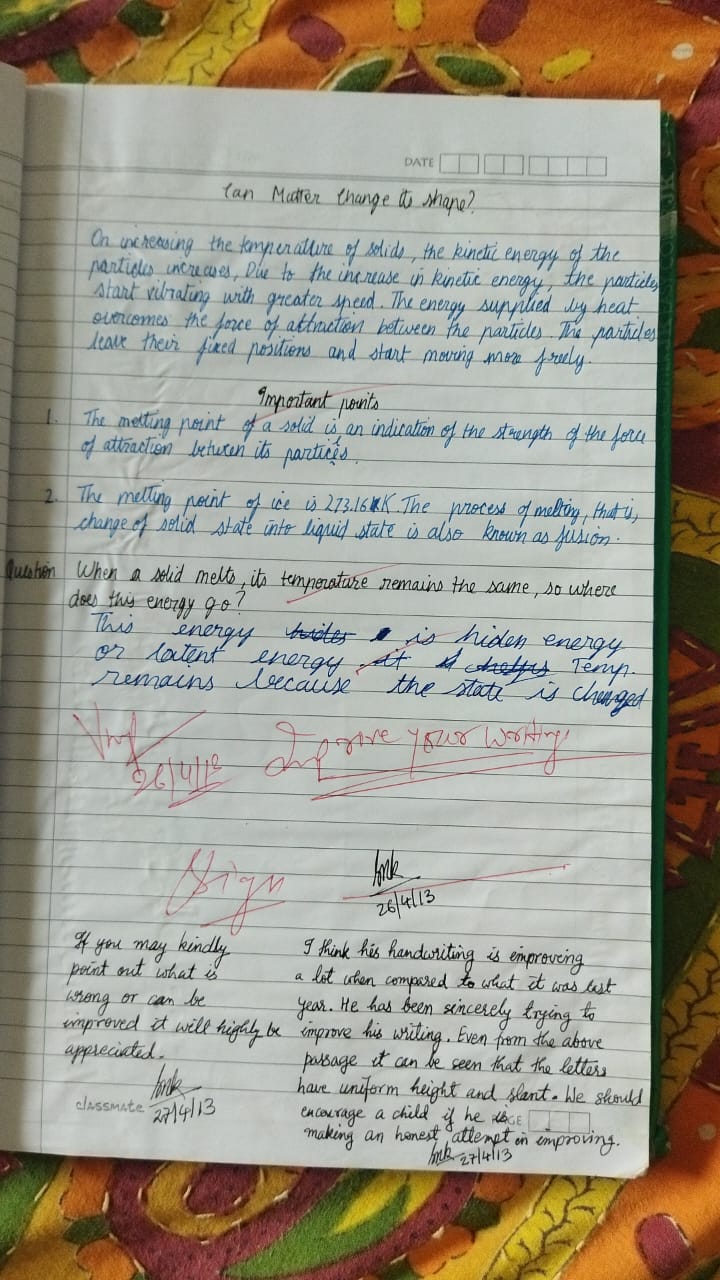 DATE
Can Matter Change its shape?
On increasing the temperature of solids, the kinetic energy of the
particles increases, Due to the increase in kinetic energy, the particles
start vibrating with greater speed. The energy supplied by heat
overcomes the force of attraction between the particles. The particles
leave their fixed positions and start moving more freely.
Important points
1. The melting point of a solid is an indication of the strength of the force
of attraction between its particles.
2. The melting point of ice is 273.16 K. The process of melting, that is,
change of solid state into liquid state is also known as fusion.
Question When a solid melts, its temperature remains the same, so where
does this energy go?
This energy hides is hiden energy
or latent energy it helps Temp.
remains because the state is changed
26/4/13 Improve your writing
Sign
26/4/13
If you may kindly
point out what is
wrong or can be
improved it will highly be
appreciated.
27/4/13
classmate
I think his handwriting is emproving
a lot when compared to what it was last
year. He has been sincerely trying to
improve his writing. Even from the above
passage it can be seen that the letters
have uniform height and slant. We should
encourage a child if he is
making an honest attempt in emproving.
27/4/13
PAGE